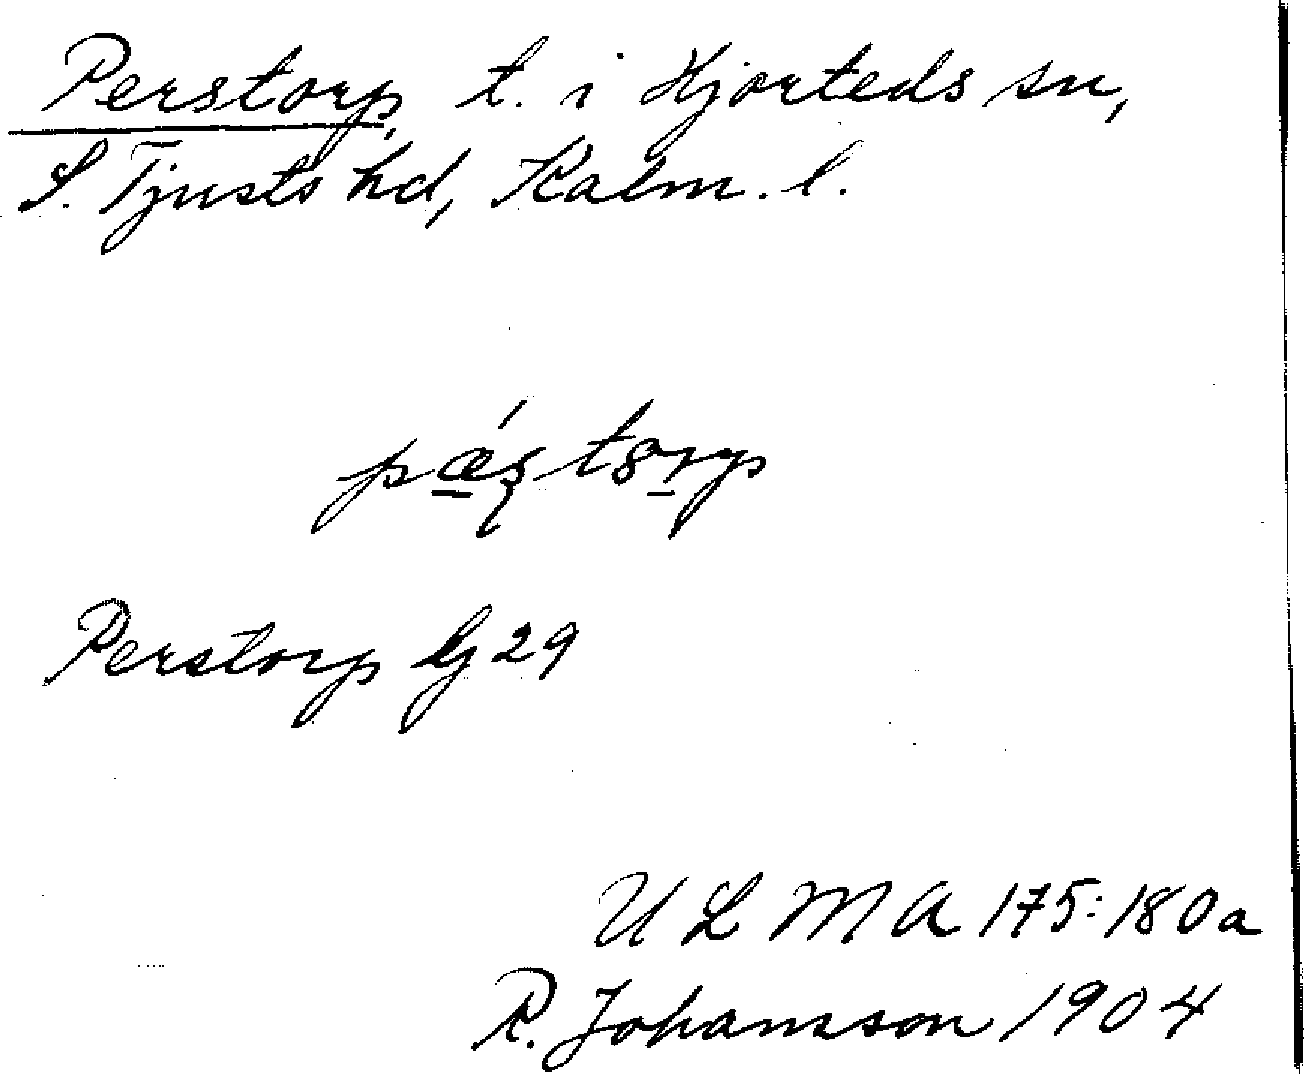 Perstorp, t. i Hjorteds sn,
S. Tjusts hd, Kalm. l.
Perstorp Gj 29
ULMA 175:180a
R. Johansson 1904